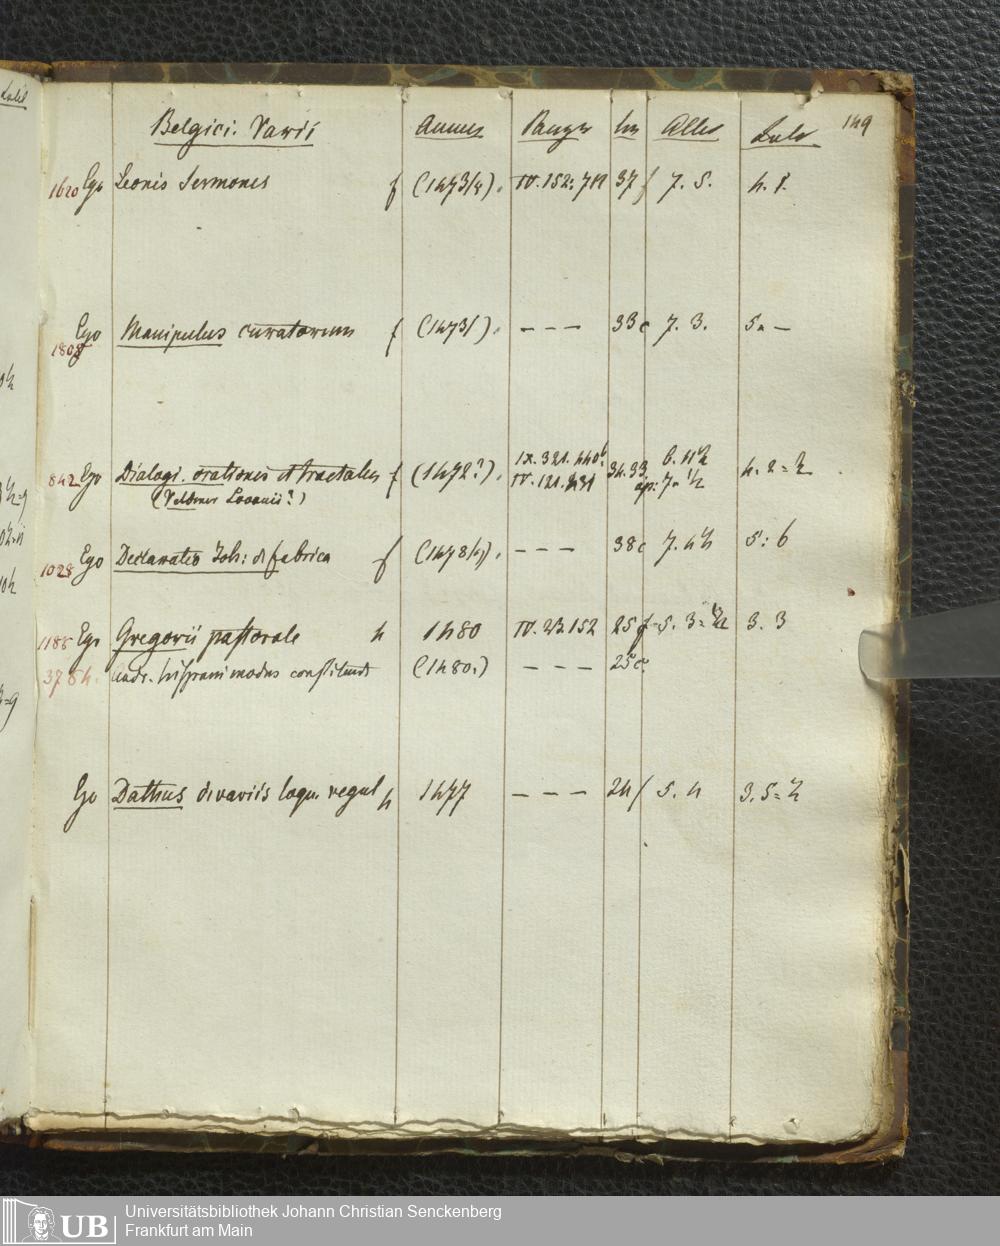 Belgici. Varii Annus Panzer Lin Altid Latid 149
1620 Ego Leonis Sermones f (1473/4). IV. 152: 711 37 f 7. 5. 4. 8.
Ego Manipulus curatorum f (1473/). - - - 33 c 7. 3. 5. -
1808
842 Ego Dialogi. orationes et tractatus f (1472?). IX. 321. 440b. 34. 33 6. 11½ 4. 2 = ½
(Veldener Lovanii?) IV. 121. 7. ½
1028 Ego Declaratio Joh: de fabrica f - - - 38 c 7. 4½ 5: 6
1188 Ego Gregorii pastorale 4 1480 IV. 23. 152 25 f 5. 3 = ½ 3. 3
Andr. hispani modus confitendi (1480.) - - - 25 c
Ego Dathus de variis loqu. regul 4 1477 - - - 24 f 5. 4 3. 5 = ½
Universitätsbibliothek Johann Christian Senckenberg
UB Frankfurt am Main